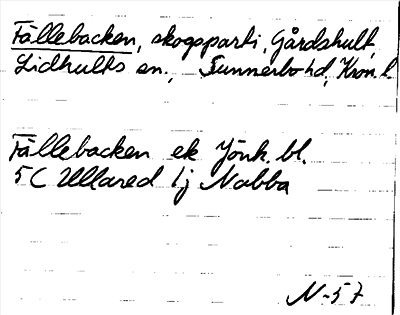 Fällebacken, skogsparti, Gårdshult,
Lidhults sn., Sunnerbo hd, Kron. l.
Fällebacken ek Jönk. bl.
5C Ullared 1j Nabba
N-57